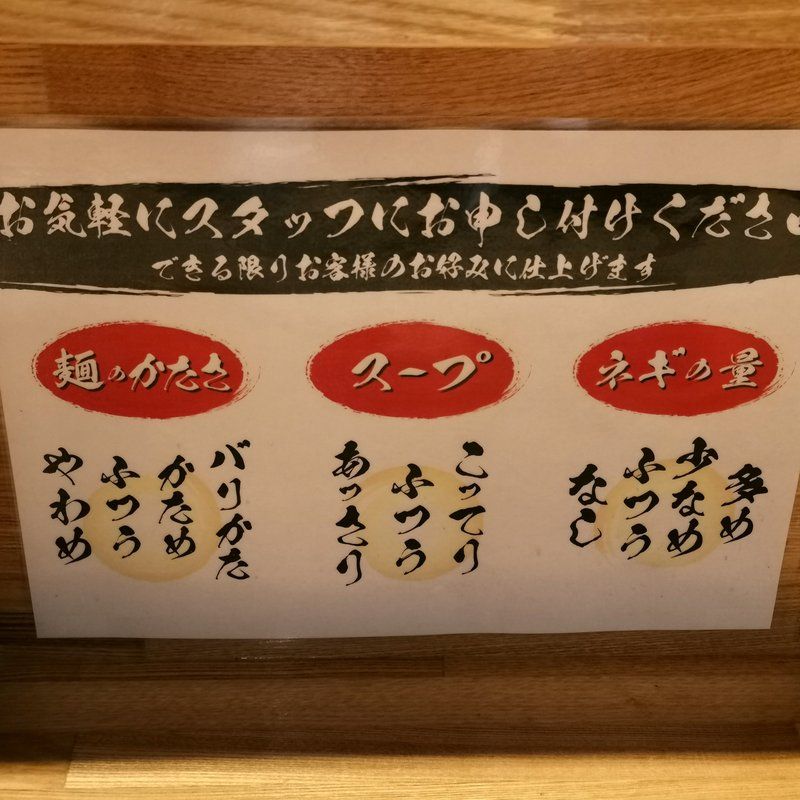 お気軽にスタッフにお申し付けください
できる限りお客様のお好みに仕上げます
麺のかたさ
バリかた
かため
ふつう
やわめ
スープ
こってり
ふつう
あっさり
ネギの量
多め
少なめ
ふつう
なし